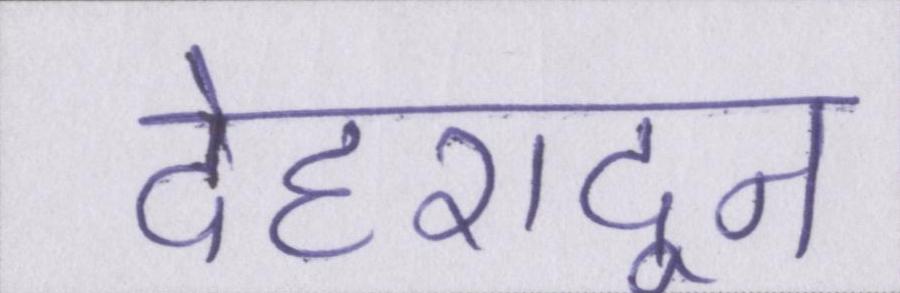 देहरादून